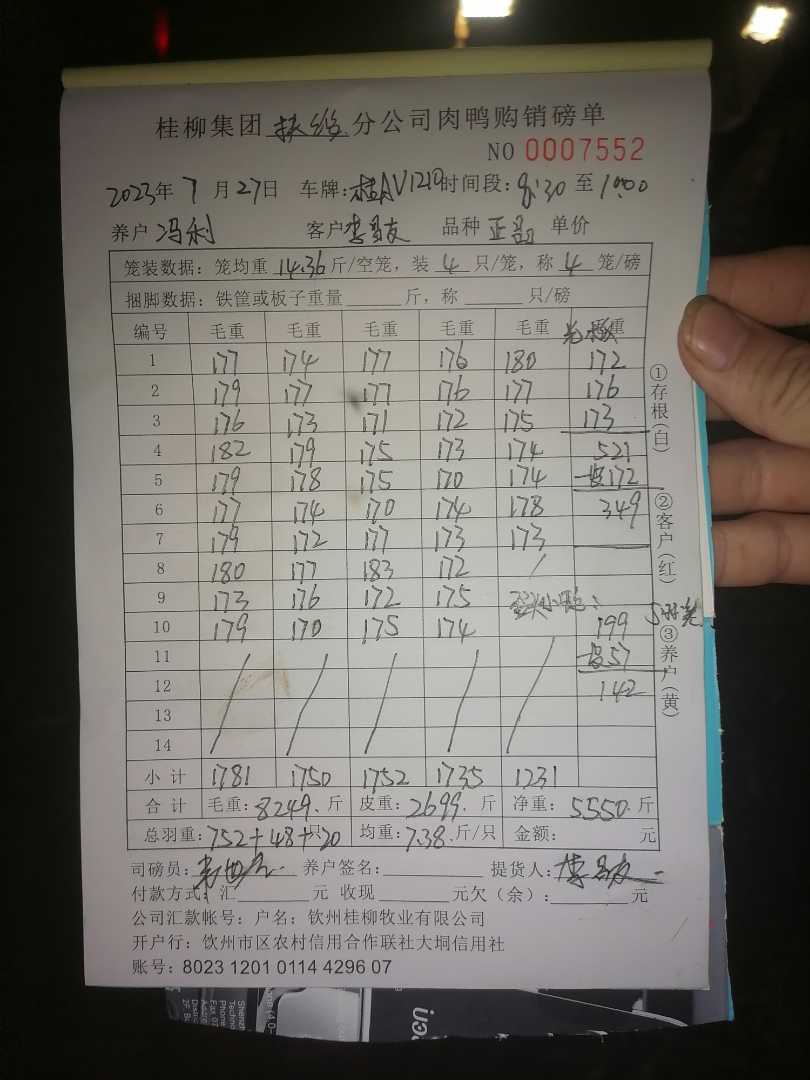 桂柳集团 扶绥 分公司肉鸭购销磅单
NO 0007552
2023年 7月 27日 车牌:桂AV1210 时间段:8:30 至 10:00
养户 冯利 客户 李 友 品种 正 单价
笼装数据:笼均重 14.36 斤/空笼,装 4 只/笼,称 4 笼/磅
捆脚数据:铁筐或板子重量 斤,称 只/磅
编号 毛重 毛重 毛重 毛重 毛重 重
1 177 174 177 176 180 172
2 179 177 177 176 177 176
3 176 173 171 172 175 173
4 182 179 175 173 174 521
5 179 178 175 170 174 172
6 177 174 170 174 178 349
7 179 172 177 173 173
8 180 177 183 172 /
9 173 176 172 175 小鸭:
10 179 170 175 174 199
11 57
12 142
13
14
小计 1781 1750 1752 1735 1231
合计 毛重:8249.斤 皮重:2699.斤 净重:5550.斤
总羽重:752+48+20 只 均重:7.38.斤/只 金额: 元
司磅员: 养户签名: 提货人:
付款方式:汇 元 收现 元欠(余): 元
公司汇款帐号:户名:钦州桂柳牧业有限公司
开户行:钦州市区农村信用合作联社大垌信用社
账号:8023 1201 0114 4296 07
①存根(白)
②客户(红)
③养户(黄)